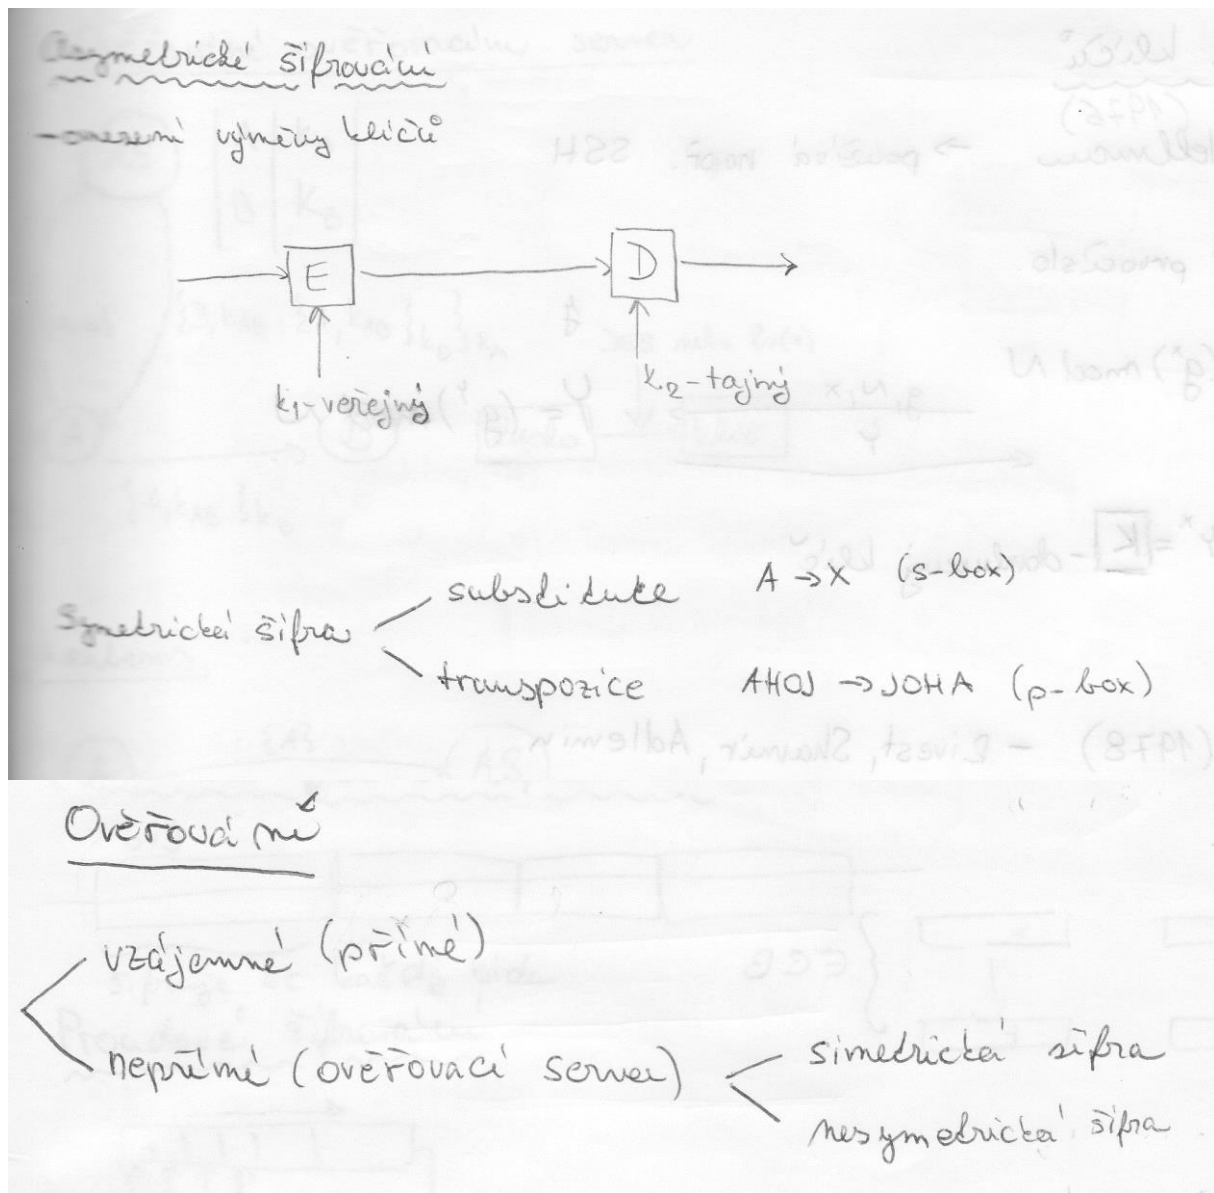 Asymetrické šifrování
- omezení výměny klíčů
E
D
k1-veřejný
k2-tajný
Symetrická šifra
substituce A → X (s-box)
transpozice AHOJ → JOHA (p-box)
Ověřování
vzájemné (přímé)
nepřímé (ověřovací server)
simetrická šifra
nesymetrická šifra